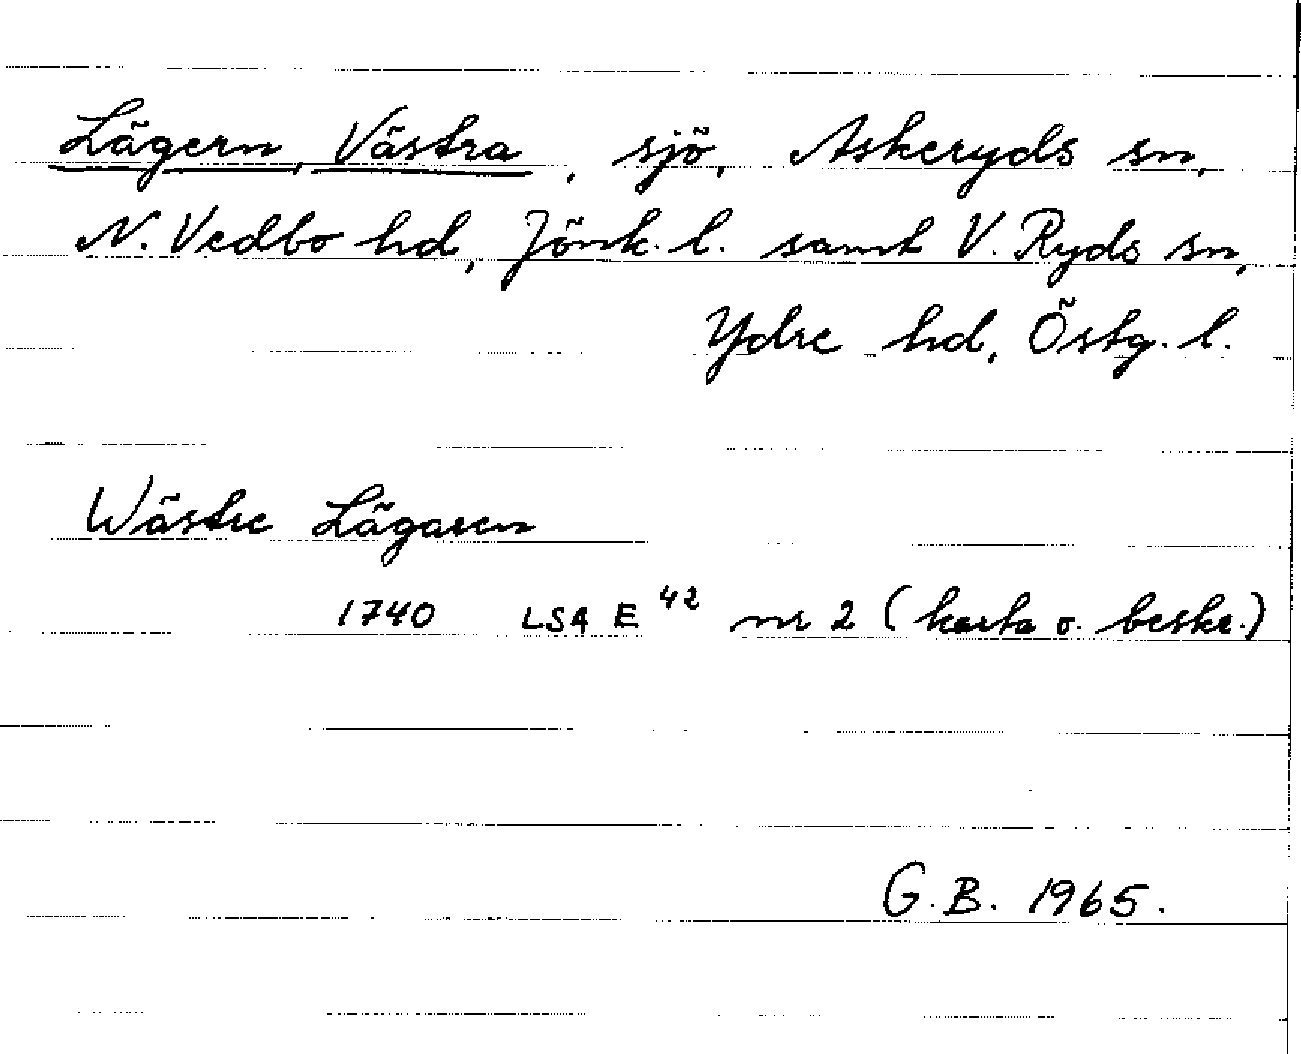 Lägern, Västra, sjö, Askeryds sn,
N. Vedbo hd, Jönk. l. samt V. Ryds sn,
Ydre hd, Östg. l.
Wästre Lägaren
1740 LSA E 42 nr 2 (karta o. beskr.)
G. B. 1965.